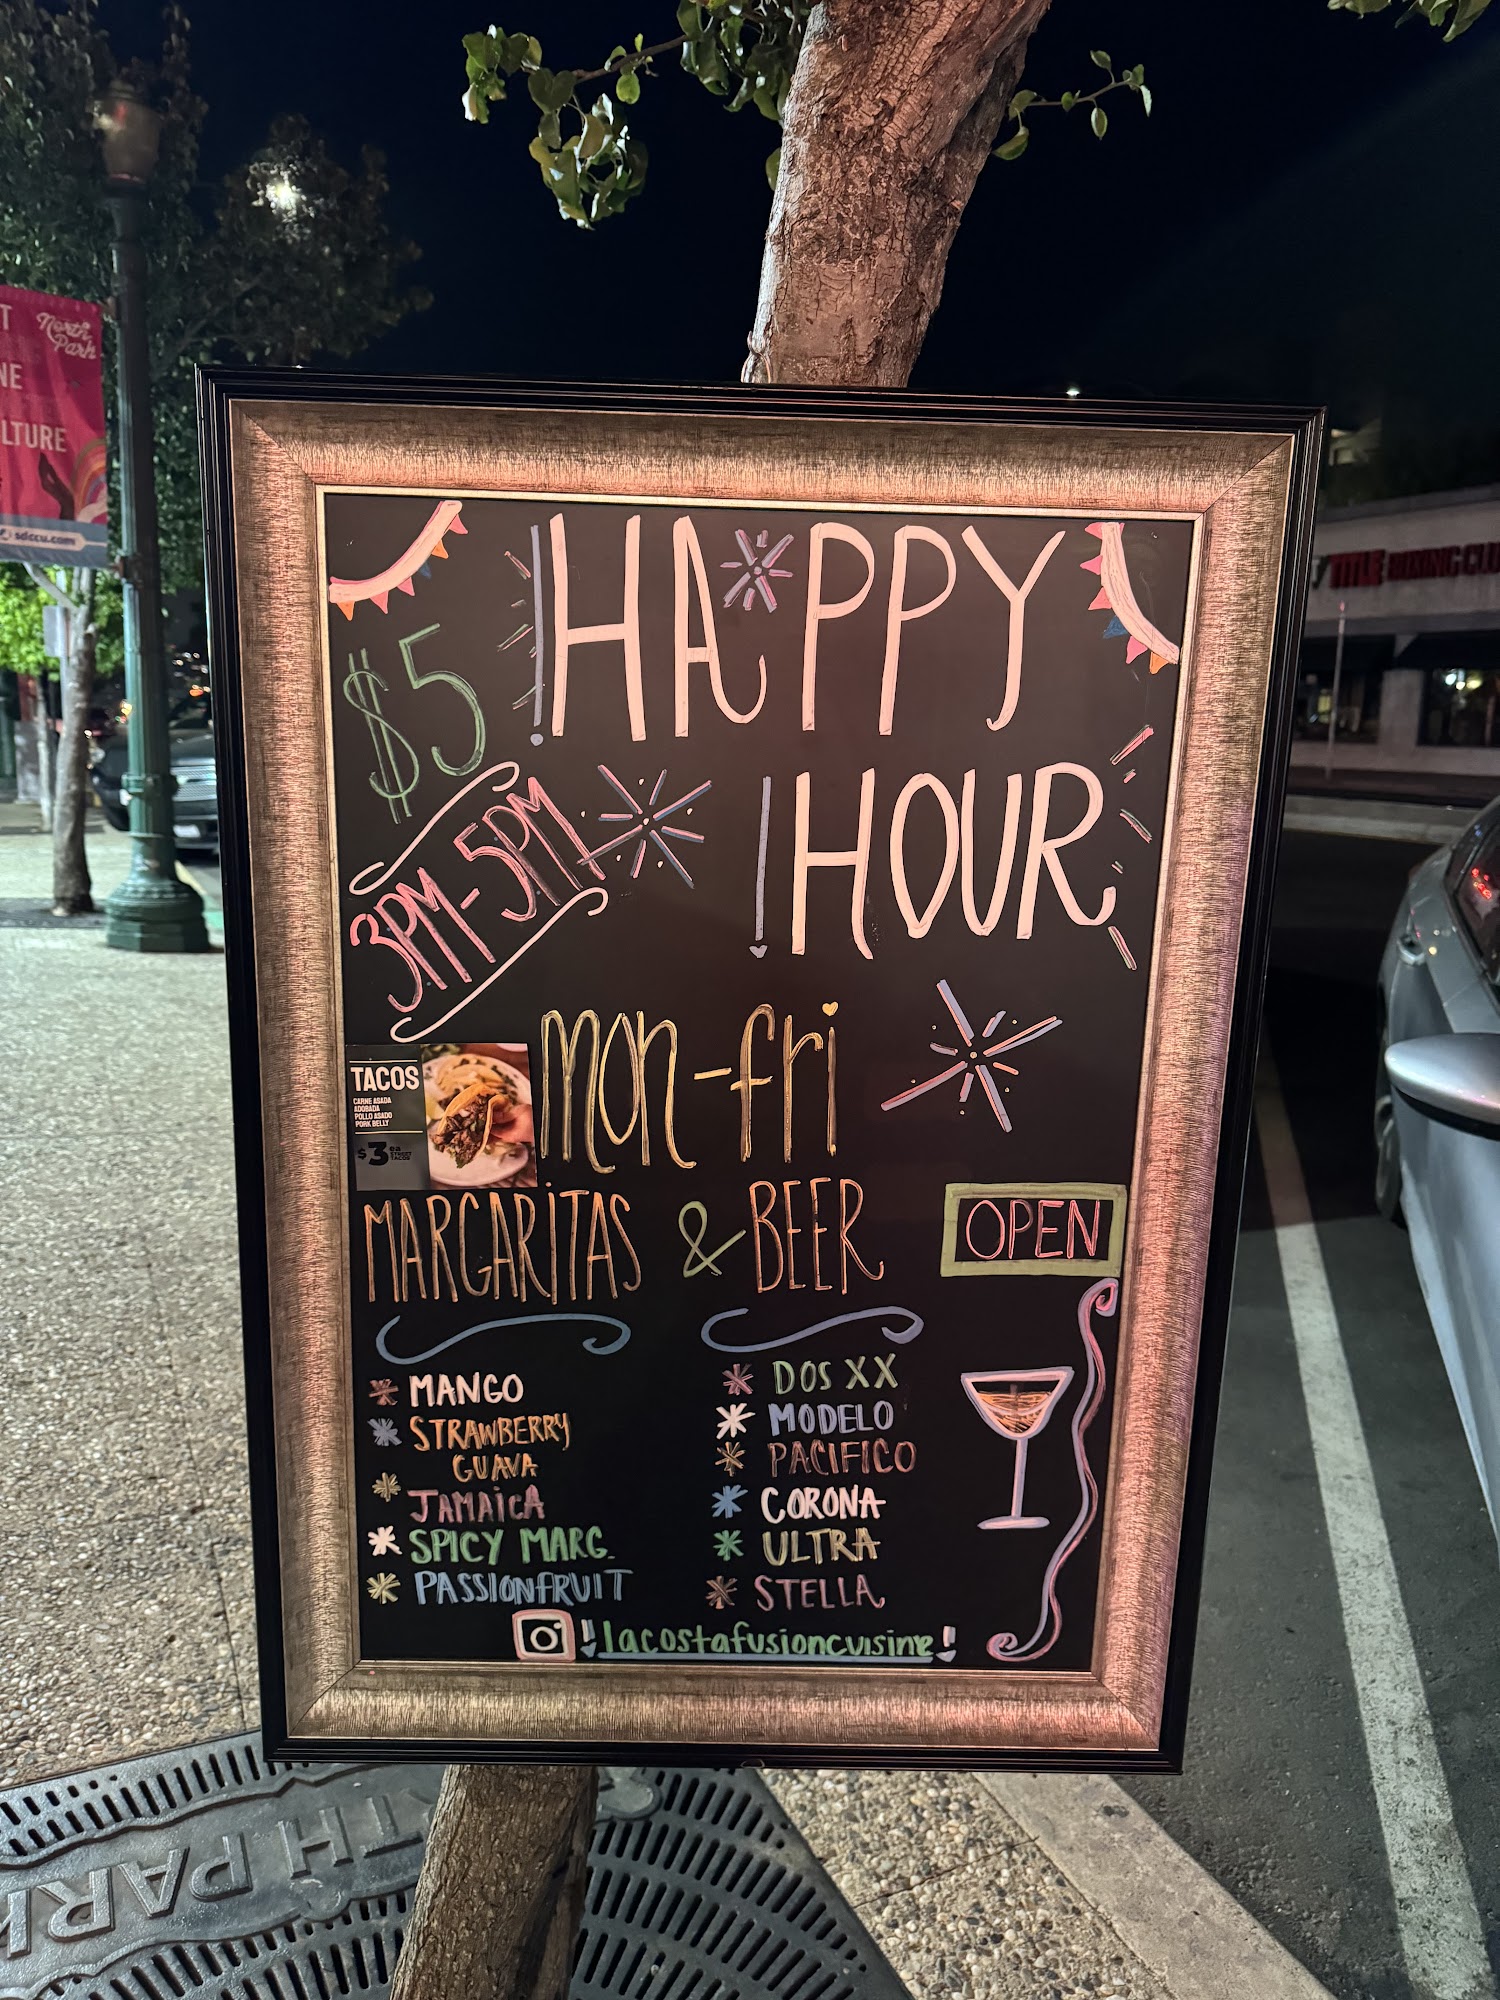 North
Park
NE
LTURE
sdccu.com
TITLE BOXING CLU
!HAPPY
$5
!HOUR
3PM-5PM
mon-fri
TACOS
CARNE ASADA
ADOBADA
POLLO ASADO
PORK BELLY
$3 ea
STREET
TACOS
MARGARITAS & BEER
OPEN
MANGO
STRAWBERRY
GUAVA
JAMAiCA
SPICY MARG.
PASSIONFRUIT
DOS XX
MODELO
PACIFICO
CORONA
ULTRA
STELLA
!lacostafusioncuisine!
TH PARK